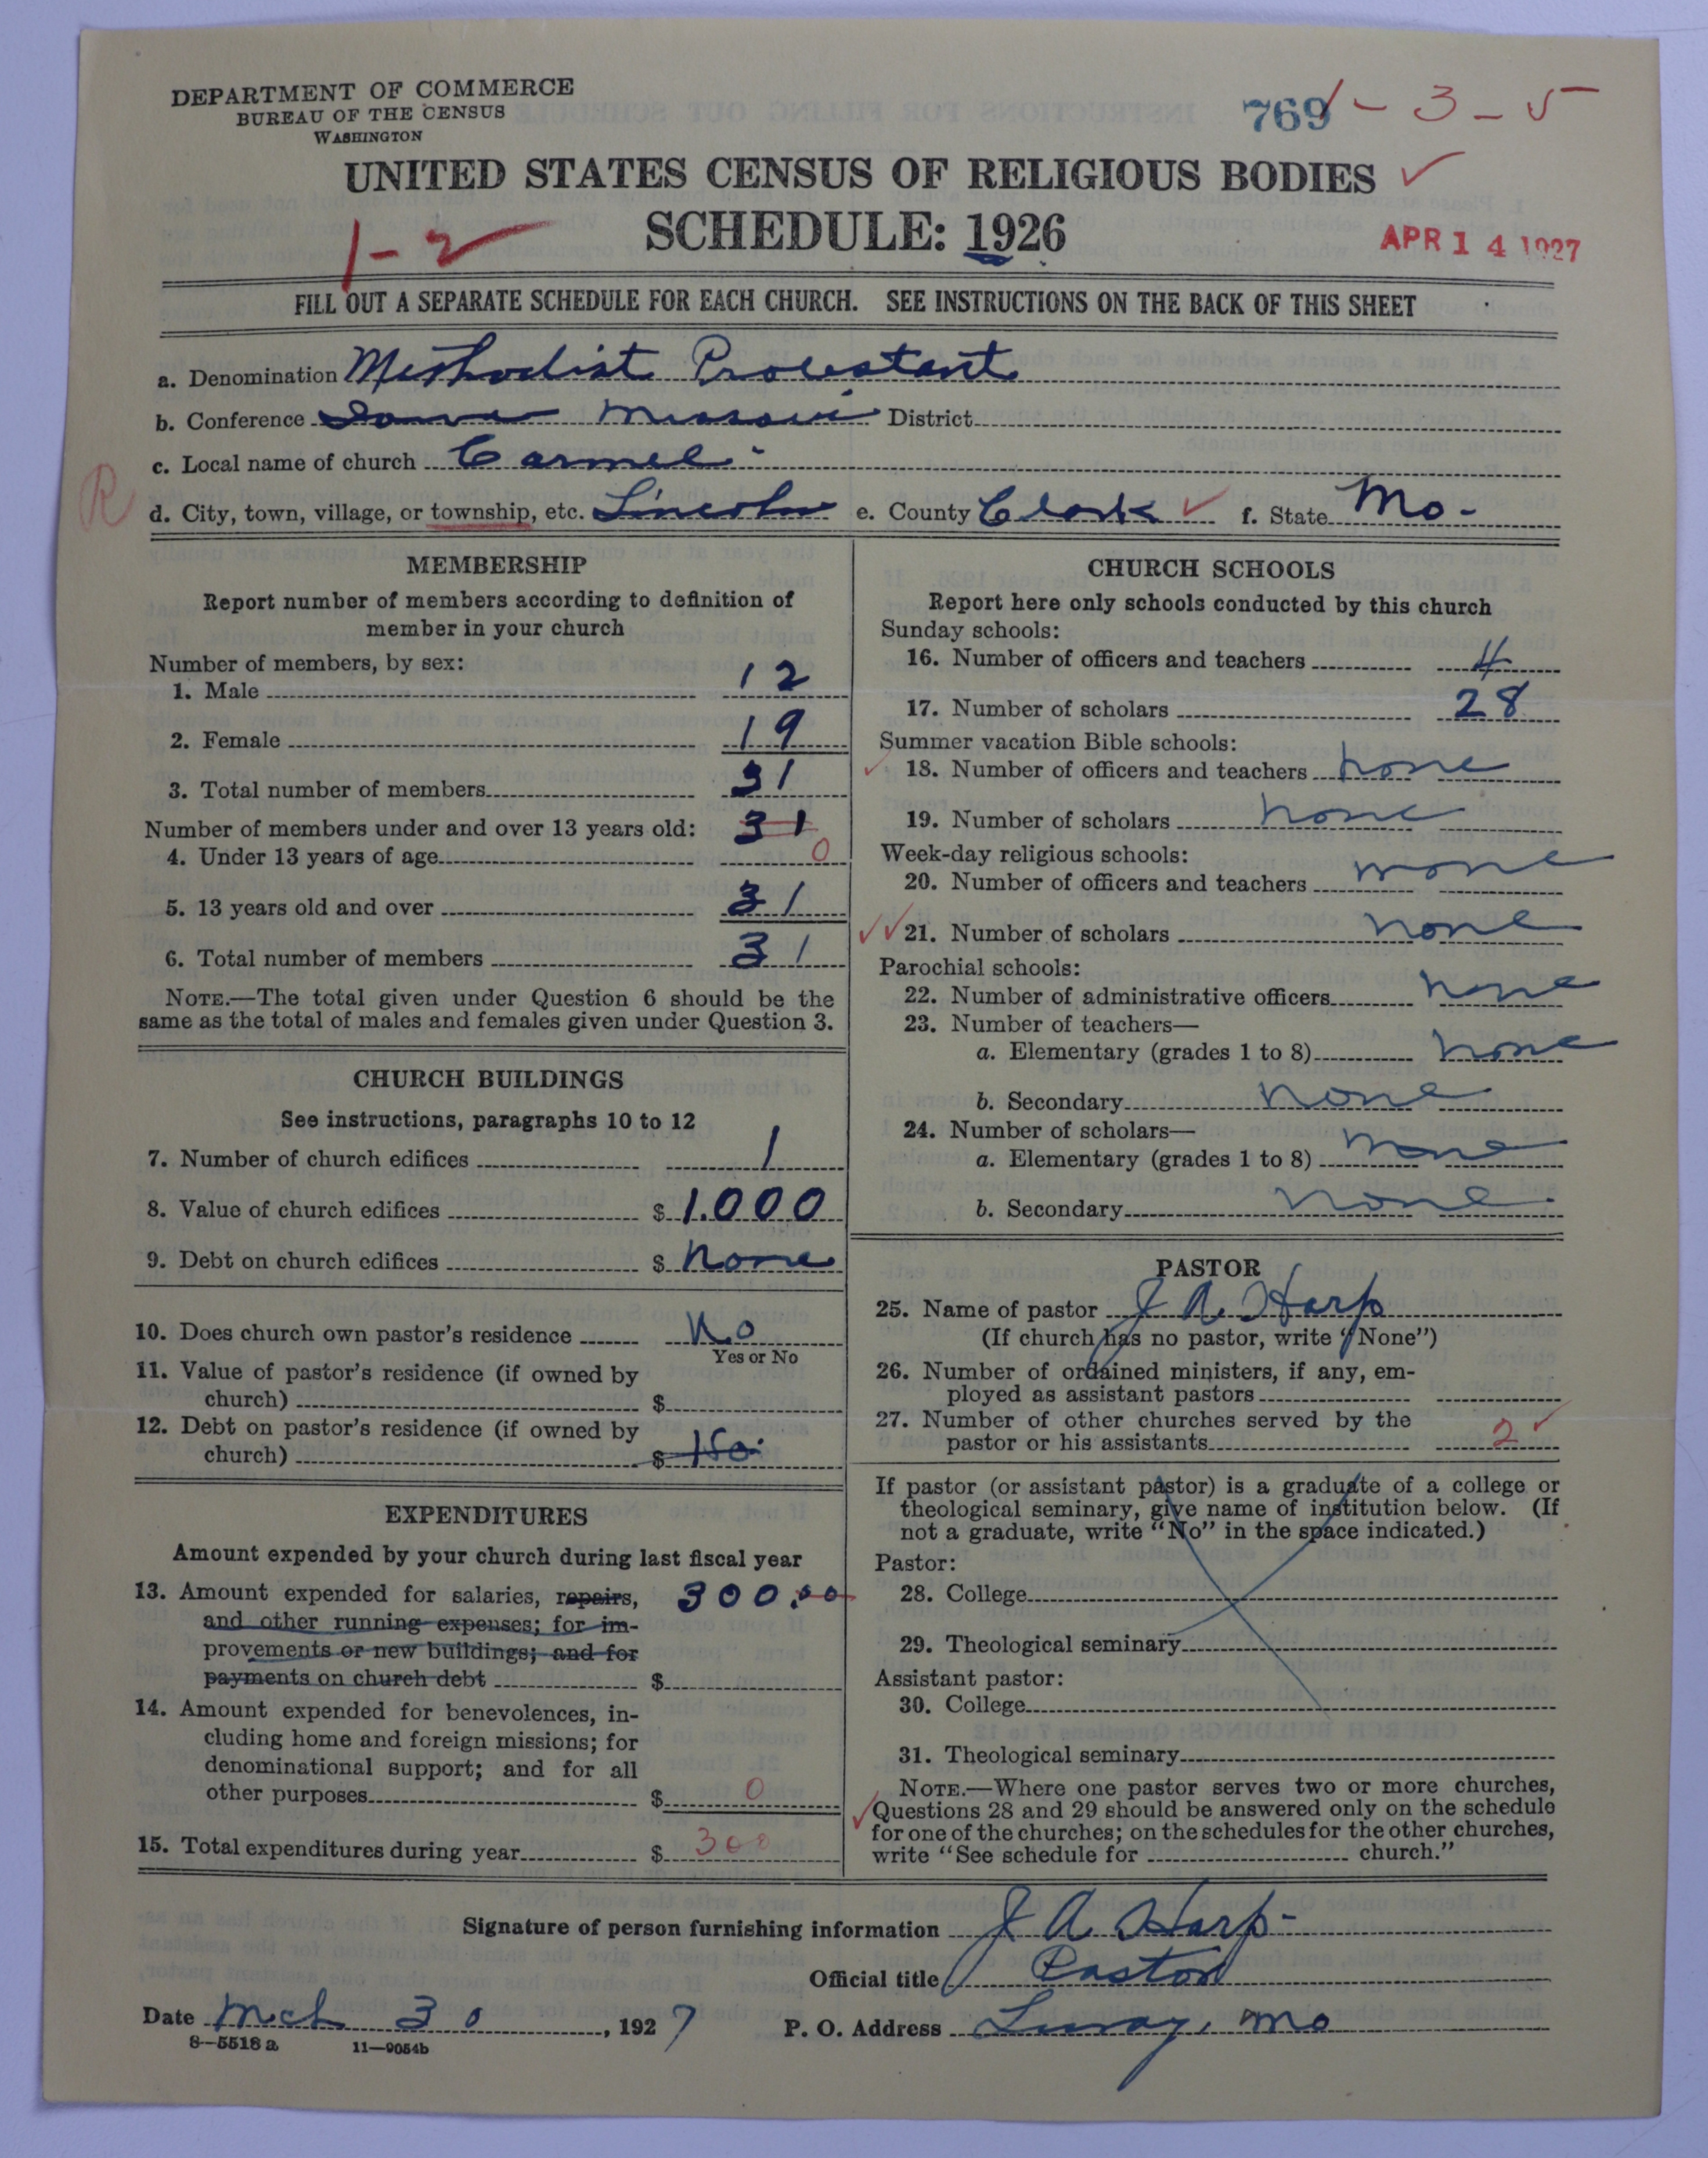 DEPARTMENT OF COMMERCE
BUREAU OF THE CENSUS
WASHINGTON
769 1-3-5
UNITED STATES CENSUS OF RELIGIOUS BODIES
1-2
SCHEDULE: 1926
APR 14 1927
FILL OUT A SEPARATE SCHEDULE FOR EACH CHURCH. SEE INSTRUCTIONS ON THE BACK OF THIS SHEET
a. Denomination Methodist Protestant
b. Conference Iowa Missouri District
c. Local name of church Carmel
R
d. City, town, village, or township, etc. Lincoln e. County Clark f. State Mo-
MEMBERSHIP
Report number of members according to definition of
member in your church
Number of members, by sex:
1. Male 12
2. Female 19
3. Total number of members 31
Number of members under and over 13 years old: 31
4. Under 13 years of age 0
5. 13 years old and over 31
6. Total number of members 31
NOTE.—The total given under Question 6 should be the
same as the total of males and females given under Question 3.
CHURCH BUILDINGS
See instructions, paragraphs 10 to 12
7. Number of church edifices 1
8. Value of church edifices $ 1.000
9. Debt on church edifices $ None
10. Does church own pastor's residence No
Yes or No
11. Value of pastor's residence (if owned by
church) $
12. Debt on pastor's residence (if owned by
church) $
EXPENDITURES
Amount expended by your church during last fiscal year
13. Amount expended for salaries, repairs, 300.00
and other running expenses; for im-
provements or new buildings; and for
payments on church debt $
14. Amount expended for benevolences, in-
cluding home and foreign missions; for
denominational support; and for all
other purposes $ 0
15. Total expenditures during year $ 300
CHURCH SCHOOLS
Report here only schools conducted by this church
Sunday schools:
16. Number of officers and teachers 4
17. Number of scholars 28
Summer vacation Bible schools:
18. Number of officers and teachers none
19. Number of scholars none
Week-day religious schools:
20. Number of officers and teachers none
21. Number of scholars none
Parochial schools:
22. Number of administrative officers none
23. Number of teachers—
a. Elementary (grades 1 to 8) none
b. Secondary none
24. Number of scholars—
a. Elementary (grades 1 to 8) none
b. Secondary none
PASTOR
25. Name of pastor J A. Harp
(If church has no pastor, write "None")
26. Number of ordained ministers, if any, em-
ployed as assistant pastors
27. Number of other churches served by the
pastor or his assistants 2
If pastor (or assistant pastor) is a graduate of a college or
theological seminary, give name of institution below. (If
not a graduate, write "No" in the space indicated.)
Pastor:
28. College
29. Theological seminary
Assistant pastor:
30. College
31. Theological seminary
NOTE.—Where one pastor serves two or more churches,
Questions 28 and 29 should be answered only on the schedule
for one of the churches; on the schedules for the other churches,
write "See schedule for church."
Signature of person furnishing information J A Harp
Official title Pastor
Date Mch 30, 1927 P. O. Address Luray, Mo
8—5518 a 11—9054b